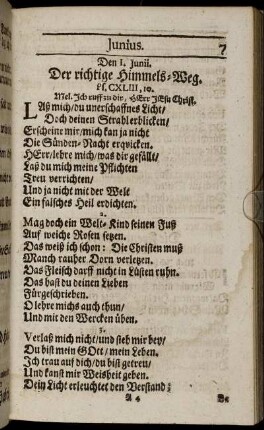 Junius.
7
Den 1. Junii.
Der richtige Himmels-Weg.
Ps. CXLIII, 10.
Mel. Ich ruff zu dir, HErr JEsu Christ.
LAß mich/du unerschaffnes Licht/
Doch deinen Strahl erblicken/
Erscheine mir/mich kan ja nicht
Die Sünden-Nacht erqvicken.
HErr/lehre mich/was dir gefällt/
Laß du mich meine Pflichten
Treu verrichten/
Und ja nicht mit der Welt
Ein falsches Heil erdichten.
2.
Mag doch ein Welt-Kind seinen Fuß
Auf weiche Rosen setzen.
Das weiß ich schon: Die Christen muß
Manch rauher Dorn verletzen.
Das Fleisch darff nicht in Lüsten ruhn.
Das hast du deinen Lieben
Fürgeschrieben.
O lehre michs auch thun/
Und mit den Wercken üben.
3.
Verlaß mich nicht/und steh mir bey/
Du bist mein GOtt/mein Leben.
Ich trau auf dich/du bist getreu/
Und kanst mir Weisheit geben.
Dein Licht erleuchtet den Verstand:
A 4